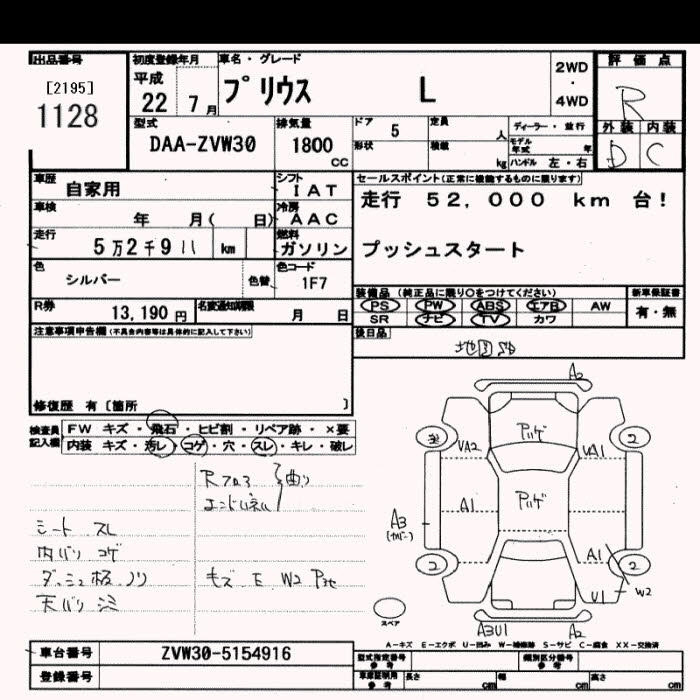 出品番号
[2195]
1128
初度登録年月
平成
22 7月
車名・グレード
プリウス L
2WD
・
4WD
評価点
R
外装 内装
D C
型式
DAA-ZVW30
排気量
1800
CC
ドア
5
形状
定員
人
積載
kg
ディーラー・並行
モデル年式 年
ハンドル 左・右
車歴
自家用
シフト
IAT
車検
年 月( 日)
冷房
AAC
走行
5万2千9 km
燃料
ガソリン
色
シルバー
色替
色コード
1F7
R券
13,190円
名変通知期限
月 日
セールスポイント(正常に機能するものに限ります)
走行 52,000 km 台!
プッシュスタート
装備品 (純正品に限り〇をつけてください)
新車保証書
PS PW ABS エアB AW
有・無
SR ナビ TV カワ
後日品
注意事項申告欄(不具合内容等は具体的に記入して下さい)
修復歴 有 [箇所 ]
検査員
記入欄
FW キズ・飛石・ヒビ割・リペア跡・×要
内装 キズ・汚レ・コゲ・穴・スレ・キレ・破レ
Rフロア
曲り
シート スレ
内バリ コゲ
ダッシュ板 ノリ
天バリ シミ
キズ E W2
A2
VA2
UA1
A1
A3
A1
W2
U1
A3U1
A2
2
2
2
スペア
A-キズ E-エクボ U-凹み W-補修跡 S-サビ C-腐食 XX-交換済
車台番号
ZVW30-5154916
登録番号
型式指定番号
参考
類別区分番号
参考
車庫証明用
参考
長さ cm
幅 cm
高さ cm